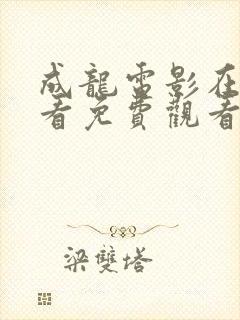 成龍雷影在
看免費觀看
梁雙塔